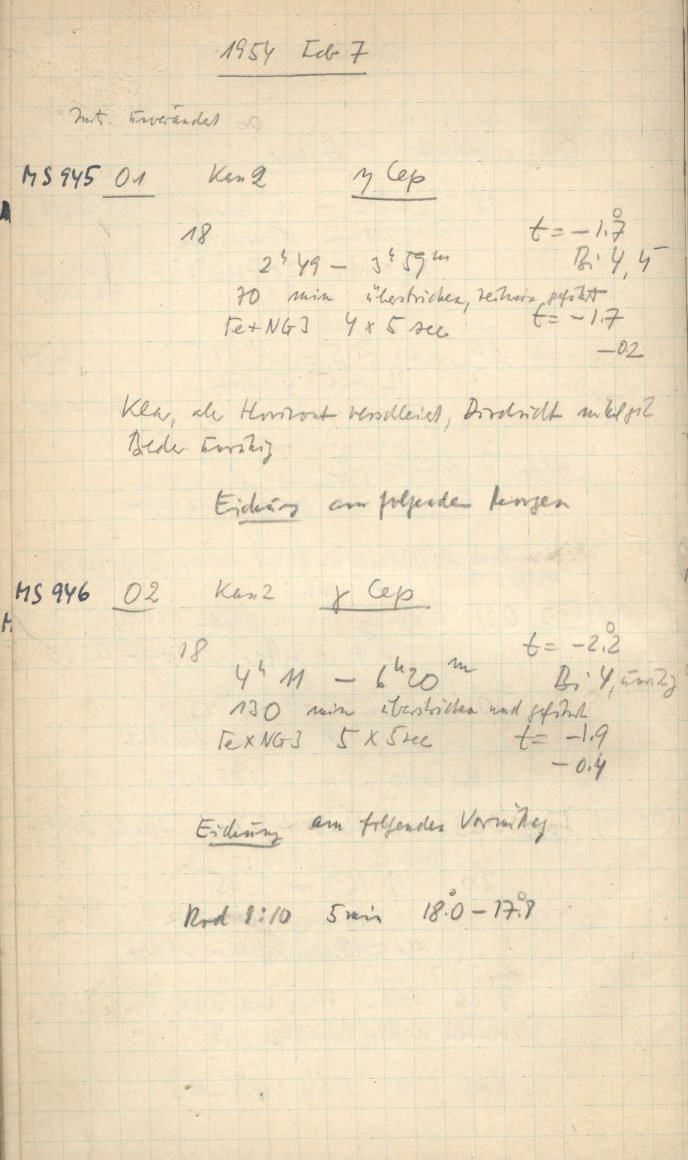 1954 Feb 7
Instr. unverändert
MS 945 01 Kan 2 η Cep
18 t = -1.°7
2h 49 - 3h 59m Bi 4, 5
70 min überstrichen, geführt
Fe+NG3 4 x 5 sec t = -1.7
-0.2
Klar, aber Horizont verschleiert, Durchsicht
Bilder unruhig
Eichung am folgenden Morgen
MS 946 02 Kan 2 γ Cep
18 t = -2.°2
4h 11 - 6h 20m Bi 4, unruhig
130 min überstrichen und geführt
Fe x NG3 5 x 5 sec t = -1.9
-0.4
Eichung am folgenden Vormittag
Rod 1:10 5 min 18.°0 - 17.°8